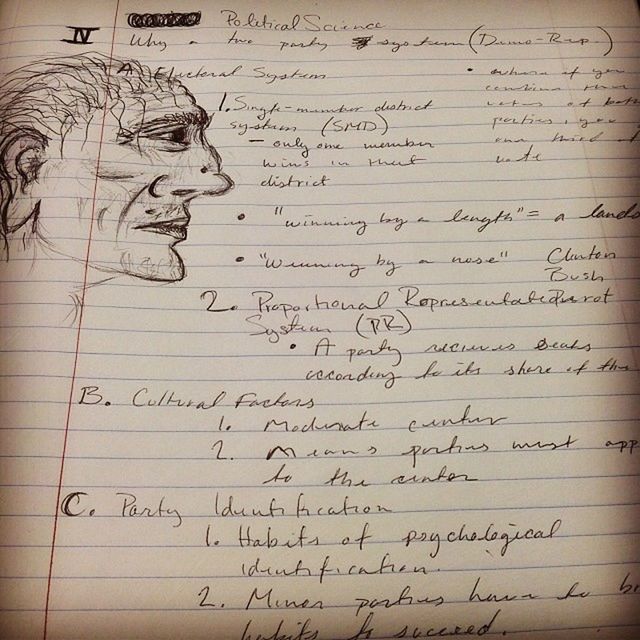 Political Science
IV Why a two party system (Demo-Rep.)
A. Electoral System
1. Single-member district
system (SMD)
- only one member
wins in that
district
• where if you
combine the
votes of both
parties, you
one third of
vote
• "winning by a length" = a lands
• "Winning by a nose" Clinton
Bush
Perot
2. Proportional Representation
System (PR)
• A party recieves seats
according to its share of the
B. Cultural Factors
1. Moderate center
2. Means parties must app
to the center
C. Party Identification
1. Habits of psychological
identification.
2. Minor parties have to br
habits to succeed.